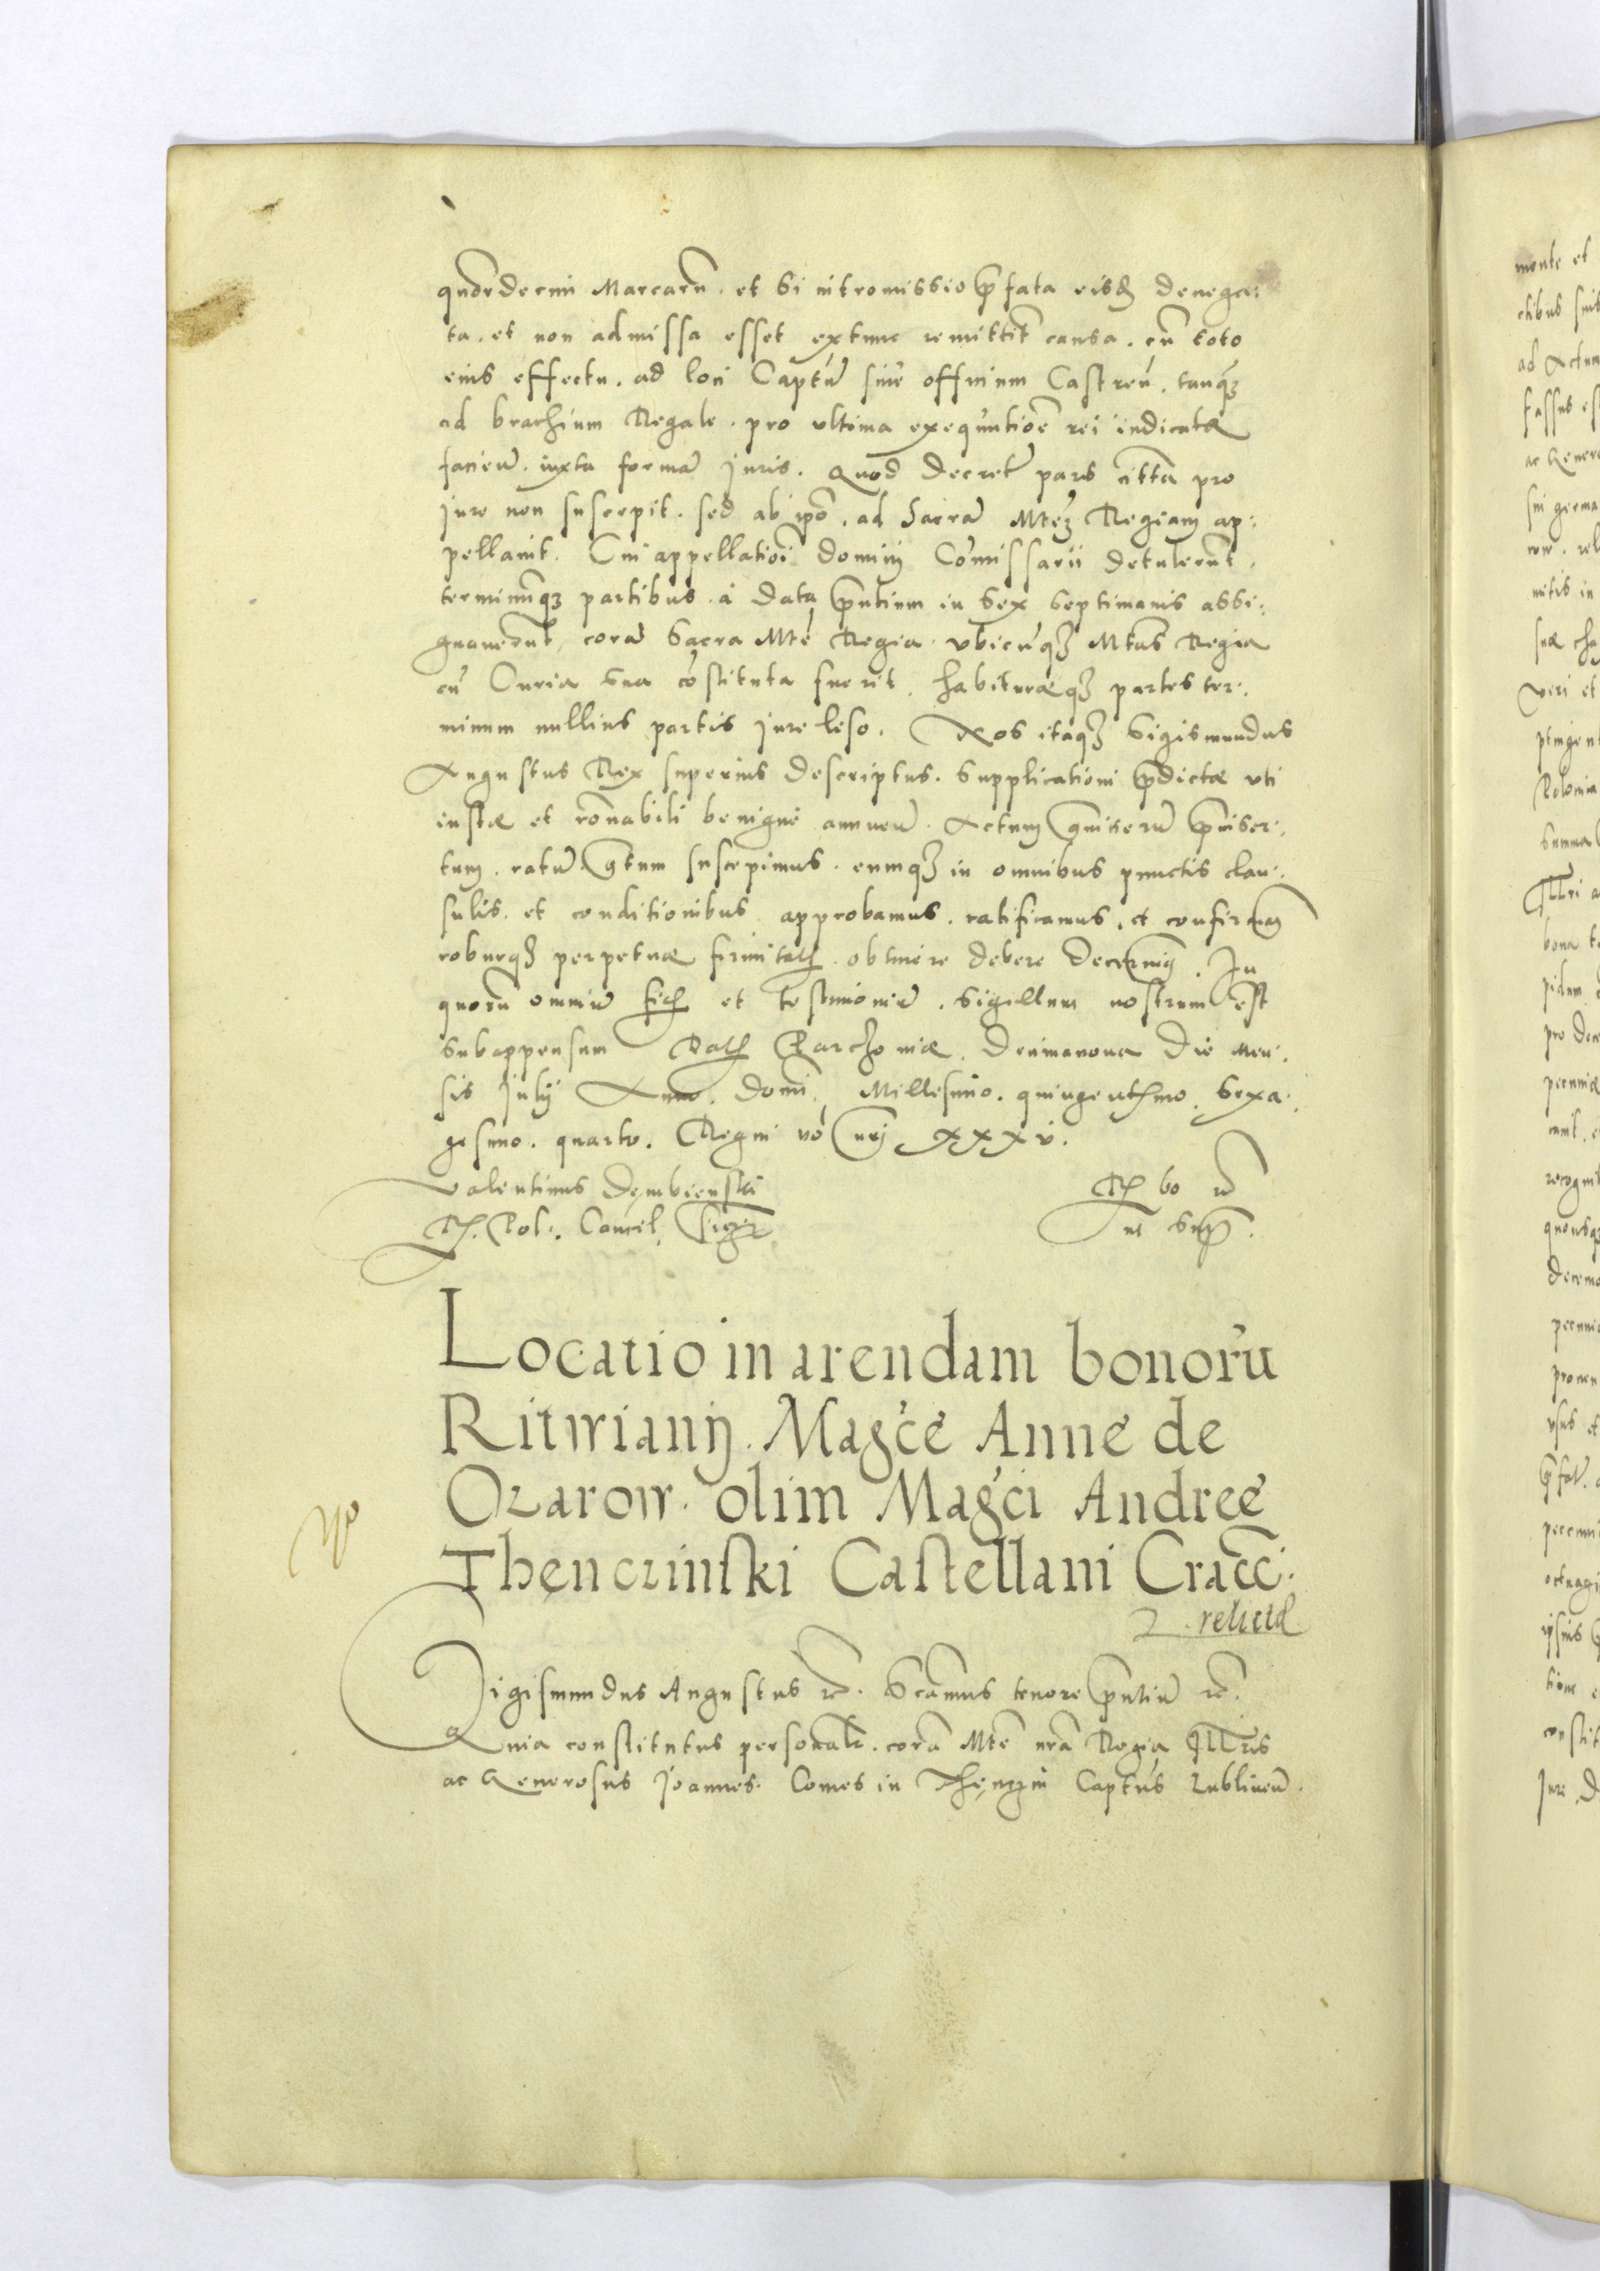 quordecim Marcaru. et si intromissio pfata eisd denega:
ta. et non admissa esset extunc remittit causa. cu toto
eius effectu. ad loci Captu sive officium Castren. tanq
ad brachium Regale. pro ultima exequutioe rei iudicatæ
facien. iuxta forma Juris. Quod decret pars citta pro
Jure non suscepit. sed ab ipo. ad Sacra Mtez Regiam ap:
pellavit. Cui appellatioi domini Comissarii detulerut.
terminuq partibus. a data pntium in sex septimanis assi:
gnaverut, cora Sacra Mte Regia. ubicuq Mtas Regia
cu Curia sua costituta fuerit. habituræq partes ter:
minum nullius partis Jure leso. Nos itaq Sigismundus
Augustus Rex superius descriptus. supplicationi pdictæ uti
iustæ et ronabili benigne annuen. Actum pmiser:
tum. ratu gtum suscepimus. eumq in omnibus punctis clau:
sulis. et conditionibus approbamus. ratificamus. et confirmam
roburq perpetuæ firmitatis obtinere debere decernim. In
quoru omniu fidem et testimoniu. sigillum nostrum est
subappensum Dat Parczoviæ. Decimanona die Men:
sis July Anno. Domi. Millesimo. quingentesimo. sexa:
gesimo. quarto. Regni vo nri XXXV.
Valentinus Dembienski
R. Pol. Cancel.
ut sup.
Locatio in arendam bonoru
Ritwianij. Magce Anne de
Ozarow. olim Magci Andree
Thenczinski Castellani Cracc.
relicta
Sigismundus Augustus rc. Scamus tenore pntiu rc.
Quia constitutus personalr. cora Mte nra Regia Illris
ac Generosus Joannes. Comes in Thenczin Captus Lublinen.